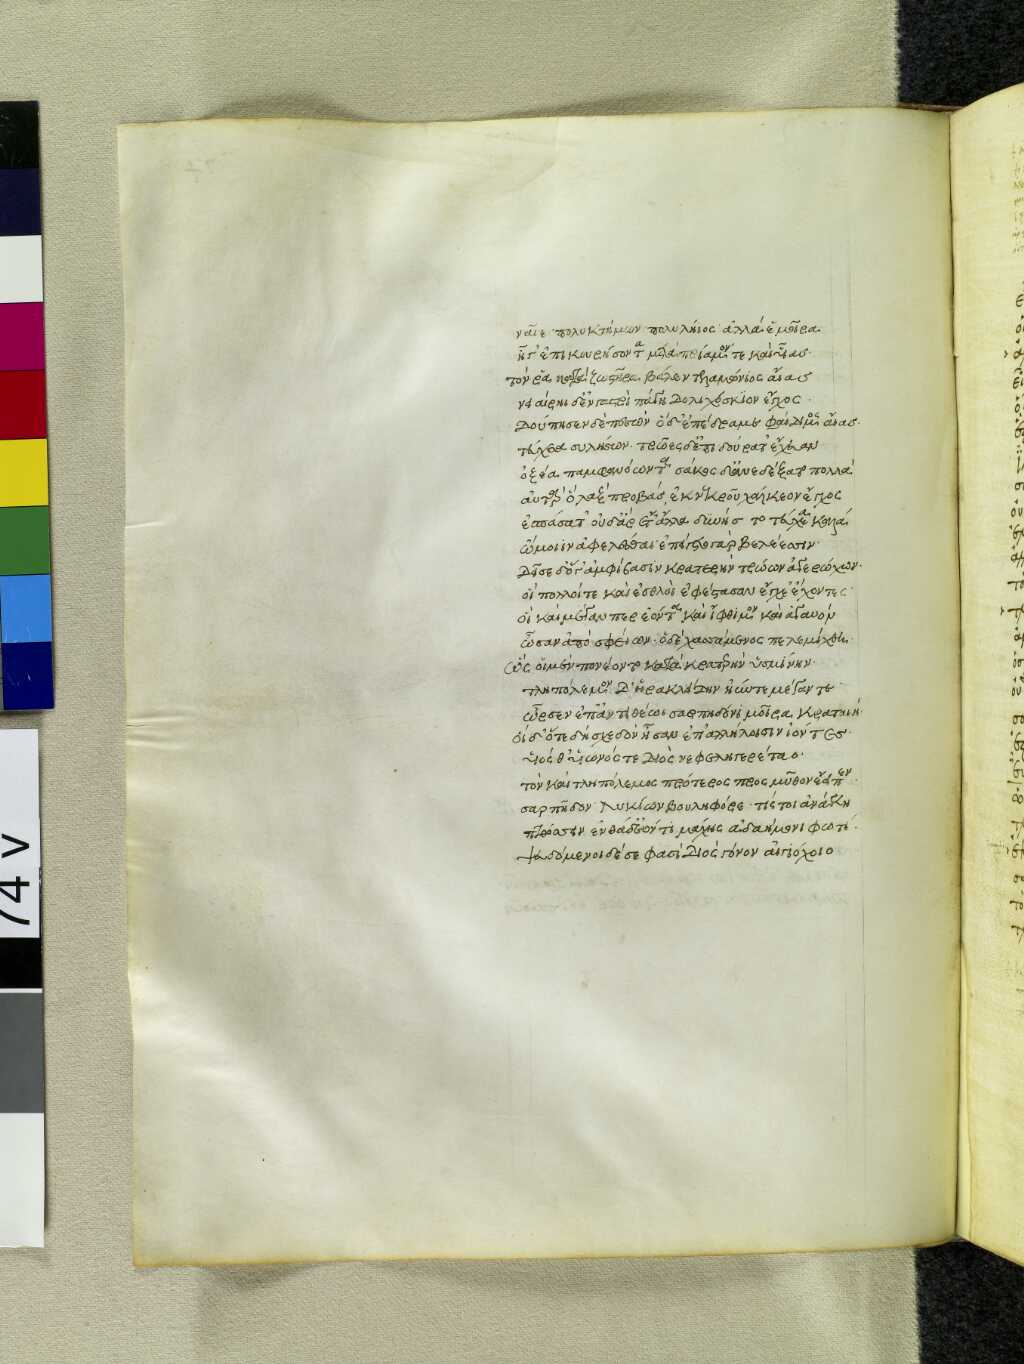 ναῖε πολυκτήμων πολυλήϊος ἀλλά ἑ μοῖρα
ἦγ' ἐπικουρήσοντα μετὰ πρίαμόν τε καὶ υἷας·
τόν ῥα κατὰ ζωστῆρα βάλεν τελαμώνιος αἴας
νειαίρηι δ' ἐν γαστρὶ πάγη δολιχόσκιον ἔγχος·
δούπησεν δὲ πεσών· ὁ δ' ἐπέδραμε φαίδιμος αἴας·
τεύχεα συλήσων· τρῶες δ' ἐπὶ δούρατ' ἔχευαν
ὀξέα παμφανόωντα· σάκος δ' ἀνεδέξατο πολλά·
αὐτὰρ ὁ λὰξ προβὰς ἐκ νεκροῦ χάλκεον ἔγχος
ἐσπάσατ' οὐδ' ἄρ ἔτ' ἄλλα δυνήσατο τεύχεα καλά
ὤμοιϊν ἀφελέσθαι· ἐπείγετο γὰρ βελέεσσιν·
δεῖσε δ' ὅγ' ἀμφίβασιν κρατερὴν τρώων ἀγερώχων·
οἳ πολλοί τε καὶ ἐσθλοὶ ἐφέστασαν ἔγχε' ἔχοντες·
οἵ καὶ μέγαν περ ἐόντα καὶ ἴφθιμον καὶ ἀγαυόν
ὦσαν ἀπὸ σφείων· ὁ δὲ χασσάμενος πελεμίχθη·
ὣς οἱ μὲν πονέοντο κατὰ κρατερὴν ὑσμίνην·
τληπόλεμον δ' ἡρακλείδην ἠΰν τε μέγαν τε
ὦρσεν ἐπ' ἀντιθέωι σαρπηδόνι μοῖρα κραταιή·
οἱ δ' ὅτε δὴ σχεδὸν ἦσαν ἐπ' ἀλλήλοισιν ἰόντες·
υἱός θ' υἱωνός τε διὸς νεφεληγερέταο·
τὸν καὶ τληπόλεμος πρότερος πρὸς μῦθον ἔειπεν·
σαρπῆδον λυκίων βουληφόρε· τίς τοι ἀνάγκη
πτώσσειν ἐνθάδ' ἐόντι μάχης ἀδαήμονι φωτί·
ψευδόμενοι δέ σε φασὶ διὸς γόνον αἰγιόχοιο
74 v